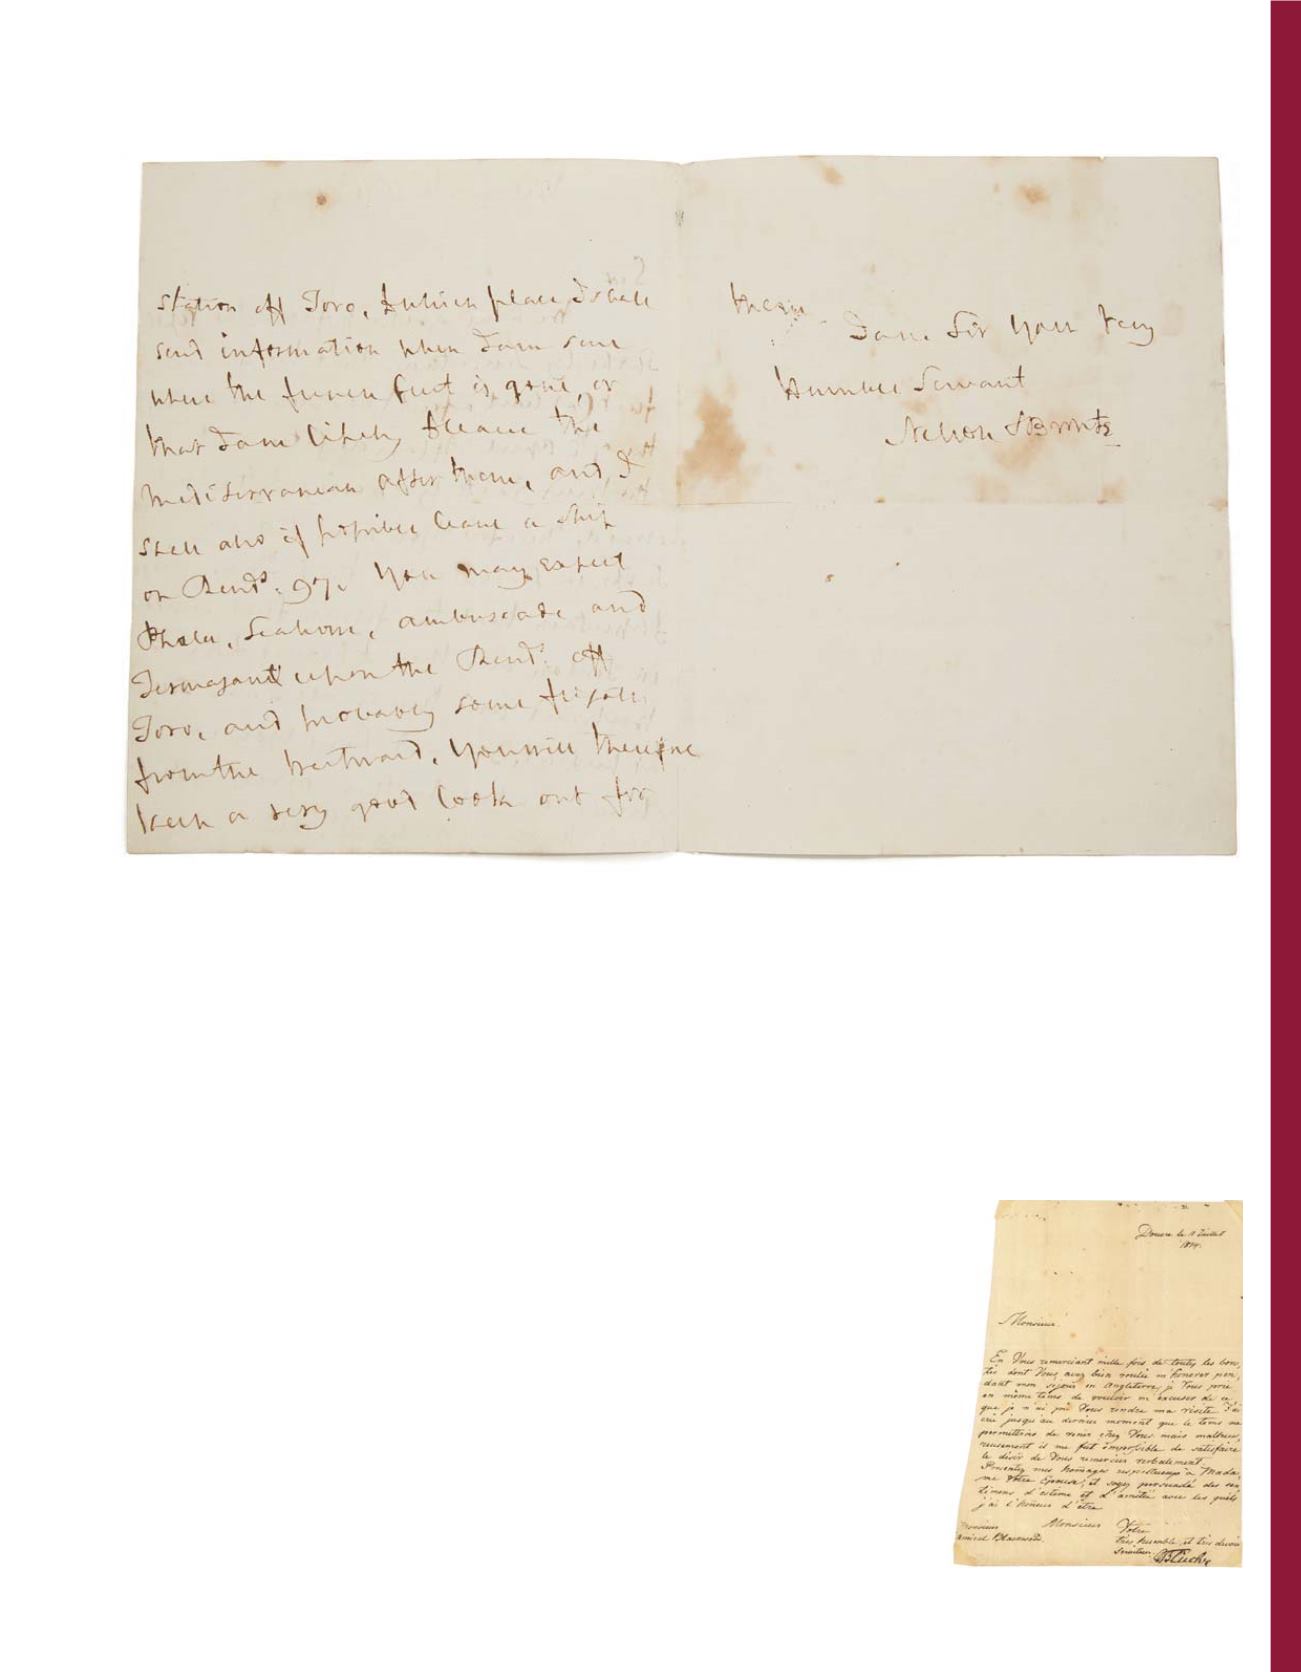 station off Toro, to which place I shall
send information when I am sure
where the french fleet is gone, or
that I am likely to leave the
Mediterranean after them, and I
shall also if possible leave a ship
on Rends. 97. You may expect
Phœbe, Seahorse, ambuscade and
Termagant upon the Rends. off
Toro, and probably some frigates
from the Westward, You will therefore
keep a very good look out for
them
I am Sir Your Very
Humble Servant
Nelson & Bronte
Douvre le Juillet
1814.
Monsieur.
En Vous remerciant mille fois de toutes les bon,
tés dont Vous avez bien voulu m'honorer pen,
dant mon séjour en Angleterre, je Vous prie
en même tems de vouloir m'excuser de ce
que je n'ai pû Vous rendre ma visite. J'ai
crû jusqu'au dernier moment que le tems me
permettroit de venir chez Vous mais malheu,
reusement il me fut impossible de satisfaire
le désir de Vous remercier verbalement.
Presentez mes homages respectueux à Mada,
me Votre Epouse; et soyez persuadé des sen
timens d'estime et d'amitié avec les quels
j'ai l'honneur d'être
Monsieur
Votre
très humble et très devoué
serviteur
Blücher
Monsieur
amiral Blackwood.